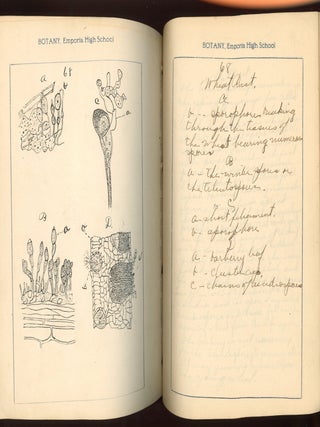 BOTANY, Emporia High School
68
a
b
a
B
a
D
BOTANY, Emporia High School
68
Wheat Rust.
a
b -- sporophores making
through the tissues of
the wheat bearing numerous
spores
B
a - the winter spores or
the teleutospores.
C
a - short filament.
b - sporophore
a - barberry leaf
b - cluster cup
c - chains of aecidiospores